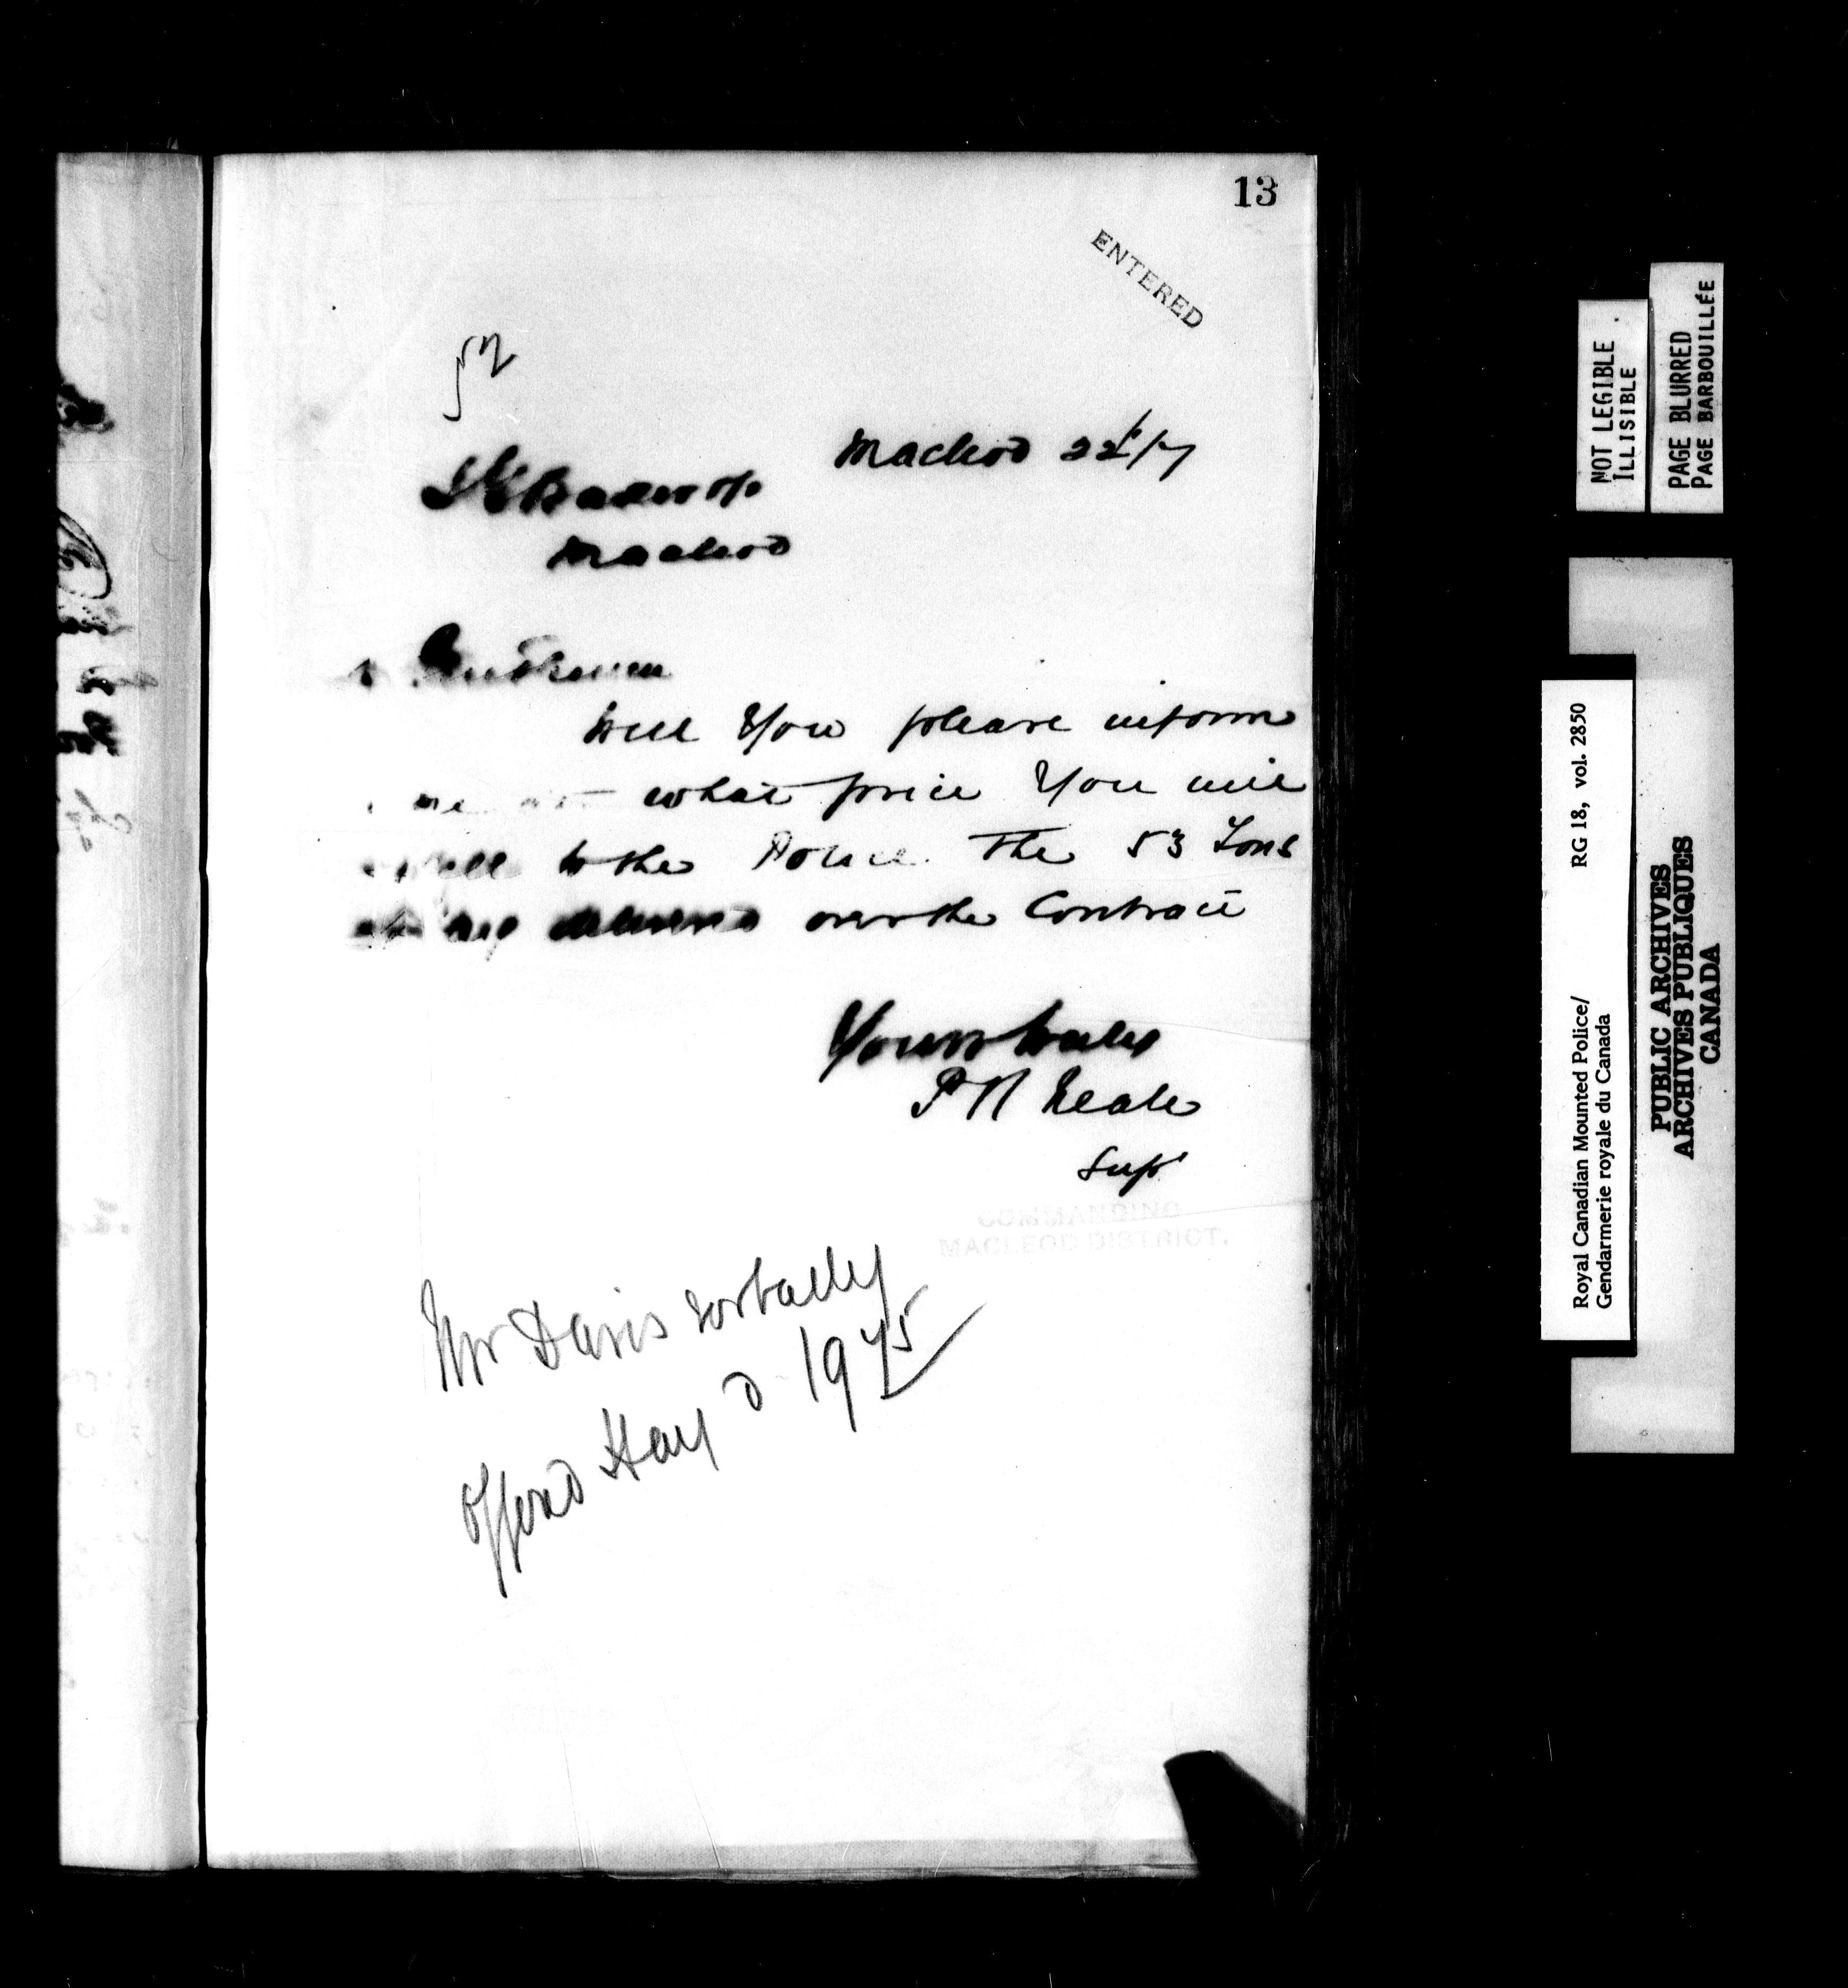 13
ENTERED
52
Macleod 22/7
I G Baker & Co
Macleod
Gentlemen
Will You please inform
me at what price You will
sell to the Police The 53 Tons
of Hay delivered over the Contract
Yours truly
P R Neale
Supt
COMMANDING
MACLEOD DISTRICT.
Mr Davis verbally
offered Hay @ 19 75
NOT LEGIBLE
ILLISIBLE
PAGE BLURRED
PAGE BARBOUILLÉE
Royal Canadian Mounted Police/ RG 18, vol. 2850
Gendarmerie royale du Canada
PUBLIC ARCHIVES
ARCHIVES PUBLIQUES
CANADA